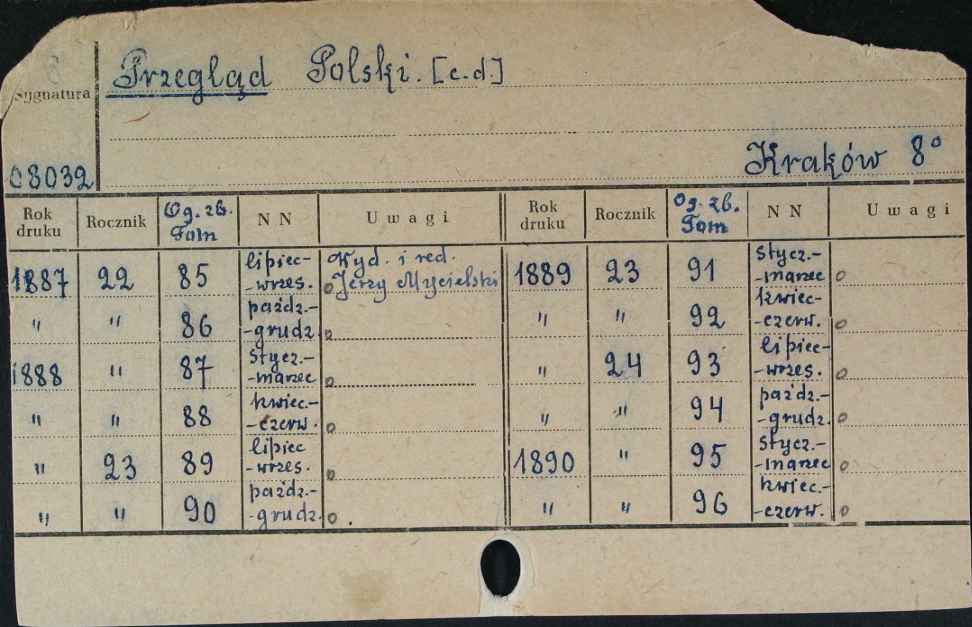 Przegląd Polski. [c.d.]
Sygnatura
Kraków 8°
C8032
Rok druku Rocznik Og. zb. Tom NN Uwagi Rok druku Rocznik Og. zb. Tom NN Uwagi
1887 22 85 lipiec-wrzes. Wyd. i red. Jerzy Mycielski 1889 23 91 stycz.-marzec
" " 86 paźdz.-grudz. " " 92 kwiec-czerw.
1888 " 87 stycz.-marzec " 24 93 lipiec-wrzes.
" " 88 kwiec.-czerw. " " 94 paźdz.-grudz.
" 23 89 lipiec-wrzes. 1890 " 95 stycz.-marzec
" " 90 paźdz.-grudz. " " 96 kwiec.-czerw.